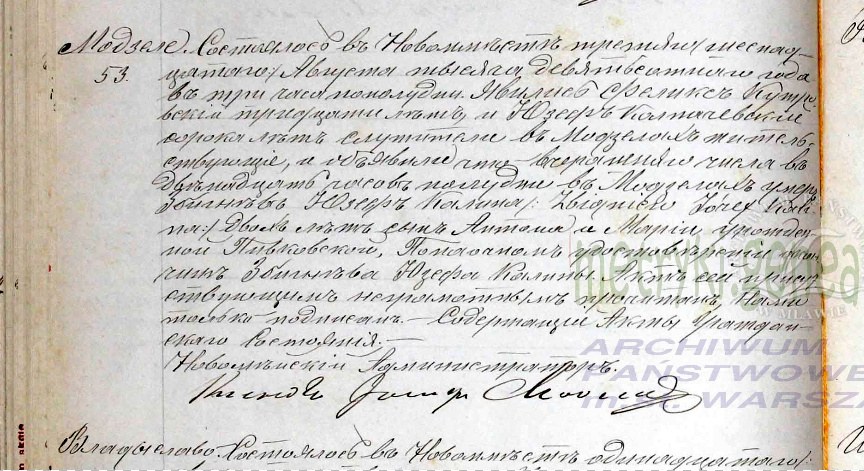 Модзеле. Состоялось въ Новомѣстѣ третяго/шеснад-
53. цатаго/ Августа тысяча девятьсотнаго года
въ три часа пополудни. Явились Феликсъ Кутро-
вскій тридцати лѣтъ, и Юзефъ Калачевскій
сорока лѣтъ служители въ Модзеляхъ житель-
ствующіе, и объявили что вчерашняго числа въ
двѣнадцать часовъ полудни въ Модзеляхъ умеръ
Збигнѣвъ Юзефъ Калина /: Zbigniew Józef Kali-
na:/ двохъ лѣтъ сынъ Антона и Маріи урожден-
ной Пивковской. По наочномъ удостовѣреніи о кон-
чинѣ Збигнѣва Юзефа Калины. Актъ сей прису-
тствующимъ неграмотнымъ прочитанъ, Нами
только подписанъ. — Содержащій Акты Граждан-
скаго Состоянія. —
Новомѣйскій Администраторъ.
metryki.genea
W MŁAWIE
ARCHIWUM
PAŃSTWOWE
m. st. WARSZA
Владыслаово. Состоялось въ Новомѣстѣ одинадцатаго/